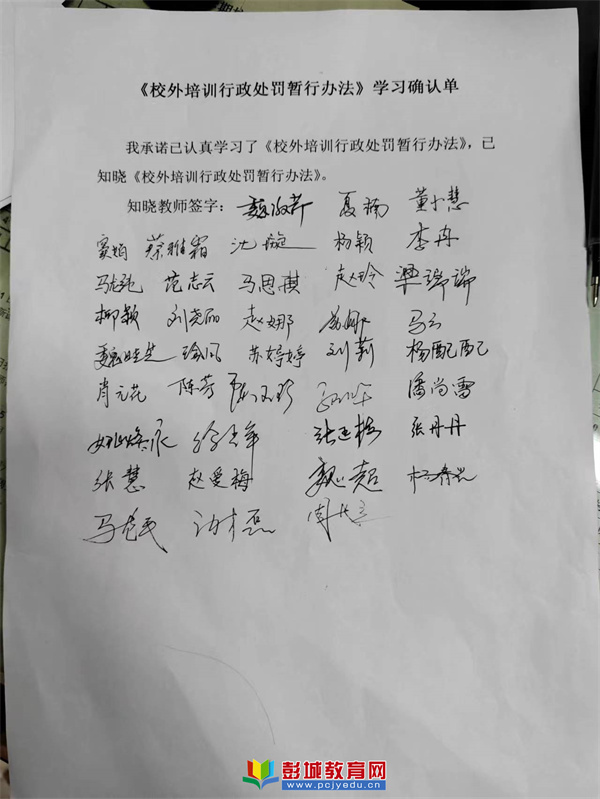 《校外培训行政处罚暂行办法》学习确认单
我承诺已认真学习了《校外培训行政处罚暂行办法》，已
知晓《校外培训行政处罚暂行办法》。
知晓教师签字： 夏楠 董小慧
蔡雅霜 沈璇 杨颖 李冉
范志云 马思祺 赵玲 梁瑞瑞
柳颖 刘尧丽 赵娜 马云
苏婷婷 刘莉 杨配配
肖元花 陈芳 潘尚雪
张丹丹
张慧 赵爱梅 魏超
彭城教育网
www.pcjyedu.cn